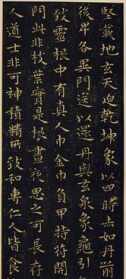 堅載地玄天迫乾坤象以四時赤如丹前
後卑各異門送以還丹與玄泉象龜引
致靈根中有真人巾金巾負甲持符開
門此非枝葉實是根晝夜思之可長存
人道士非可神積精所致和專仁人皆食